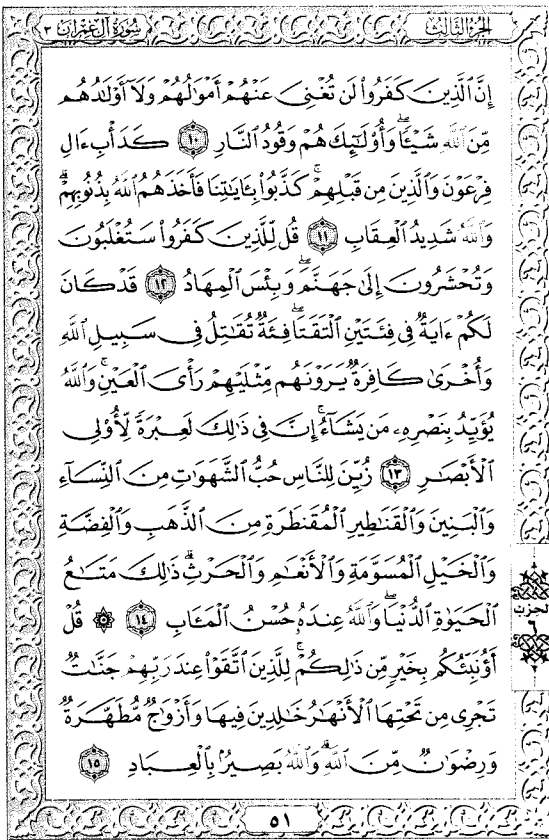 الجزء الثالث
سورة آل عمران ٣
إِنَّ ٱلَّذِينَ كَفَرُوا۟ لَن تُغْنِىَ عَنْهُمْ أَمْوَٰلُهُمْ وَلَآ أَوْلَٰدُهُم
مِّنَ ٱللَّهِ شَيْـًٔا ۖ وَأُو۟لَٰٓئِكَ هُمْ وَقُودُ ٱلنَّارِ ١٠ كَدَأْبِ ءَالِ
فِرْعَوْنَ وَٱلَّذِينَ مِن قَبْلِهِمْ ۚ كَذَّبُوا۟ بِـَٔايَٰتِنَا فَأَخَذَهُمُ ٱللَّهُ بِذُنُوبِهِمْ ۗ
وَٱللَّهُ شَدِيدُ ٱلْعِقَابِ ١١ قُل لِّلَّذِينَ كَفَرُوا۟ سَتُغْلَبُونَ
وَتُحْشَرُونَ إِلَىٰ جَهَنَّمَ ۚ وَبِئْسَ ٱلْمِهَادُ ١٢ قَدْ كَانَ
لَكُمْ ءَايَةٌ فِى فِئَتَيْنِ ٱلْتَقَتَا ۖ فِئَةٌ تُقَٰتِلُ فِى سَبِيلِ ٱللَّهِ
وَأُخْرَىٰ كَافِرَةٌ يَرَوْنَهُم مِّثْلَيْهِمْ رَأْىَ ٱلْعَيْنِ ۚ وَٱللَّهُ
يُؤَيِّدُ بِنَصْرِهِۦ مَن يَشَآءُ ۗ إِنَّ فِى ذَٰلِكَ لَعِبْرَةً لِّأُو۟لِى
ٱلْأَبْصَٰرِ ١٣ زُيِّنَ لِلنَّاسِ حُبُّ ٱلشَّهَوَٰتِ مِنَ ٱلنِّسَآءِ
وَٱلْبَنِينَ وَٱلْقَنَٰطِيرِ ٱلْمُقَنطَرَةِ مِنَ ٱلذَّهَبِ وَٱلْفِضَّةِ
وَٱلْخَيْلِ ٱلْمُسَوَّمَةِ وَٱلْأَنْعَٰمِ وَٱلْحَرْثِ ۗ ذَٰلِكَ مَتَٰعُ
ٱلْحَيَوٰةِ ٱلدُّنْيَا ۖ وَٱللَّهُ عِندَهُۥ حُسْنُ ٱلْمَـَٔابِ ١٤ ۞ قُلْ
أَؤُنَبِّئُكُم بِخَيْرٍ مِّن ذَٰلِكُمْ ۚ لِلَّذِينَ ٱتَّقَوْا۟ عِندَ رَبِّهِمْ جَنَّٰتٌ
تَجْرِى مِن تَحْتِهَا ٱلْأَنْهَٰرُ خَٰلِدِينَ فِيهَا وَأَزْوَٰجٌ مُّطَهَّرَةٌ
وَرِضْوَٰنٌ مِّنَ ٱللَّهِ ۗ وَٱللَّهُ بَصِيرٌۢ بِٱلْعِبَادِ ١٥
الحزب
٦
٥١